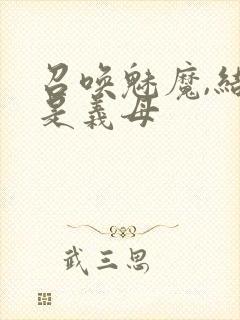 召唤魅魔,结
是义母
武三思